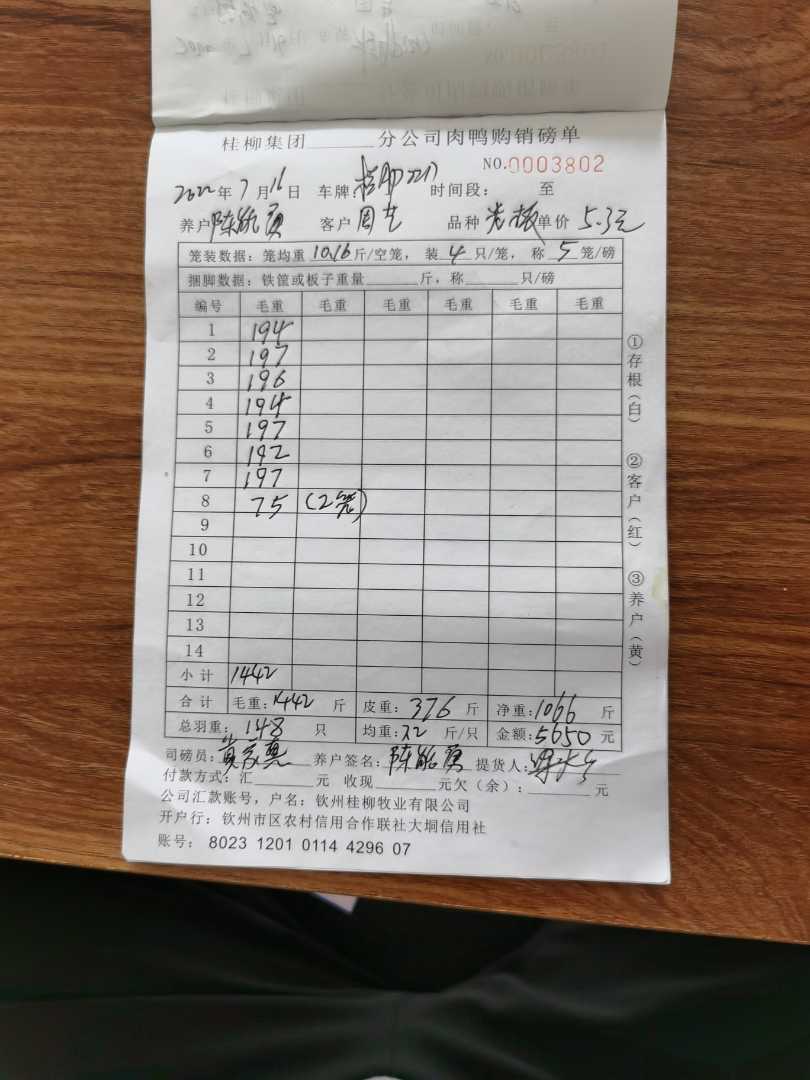 桂柳集团______分公司肉鸭购销磅单
NO.0003802
2022年7月16日 车牌: 2217 时间段: 至
养户 陈 客户 周 品种 单价 5.3元
笼装数据: 笼均重10.16斤/空笼, 装4只/笼, 称5笼/磅
捆脚数据: 铁筐或板子重量______斤, 称______只/磅
编号 毛重 毛重 毛重 毛重 毛重 毛重
1 194
2 197
3 196
4 194
5 197
6 192
7 197
8 75 (2笼)
9
10
11
12
13
14
小计 1442
合计 毛重: 1442 斤 皮重: 376 斤 净重: 1066 斤
总羽重: 148 只 均重: 7.2 斤/只 金额: 5650 元
司磅员: 黄 养户签名: 陈 提货人:
付款方式: 汇______元 收现______元欠(余): ______元
公司汇款账号, 户名: 钦州桂柳牧业有限公司
开户行: 钦州市区农村信用合作联社大垌信用社
账号: 8023 1201 0114 4296 07
①存根(白) ②客户(红) ③养户(黄)